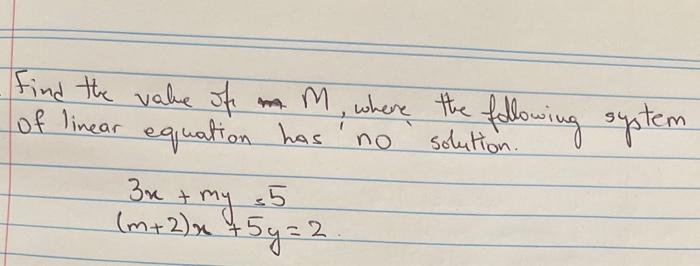 Find the value of M, where the following system
of linear equation has 'no' solution.
3x + my = 5
(m+2)x + 5y = 2.